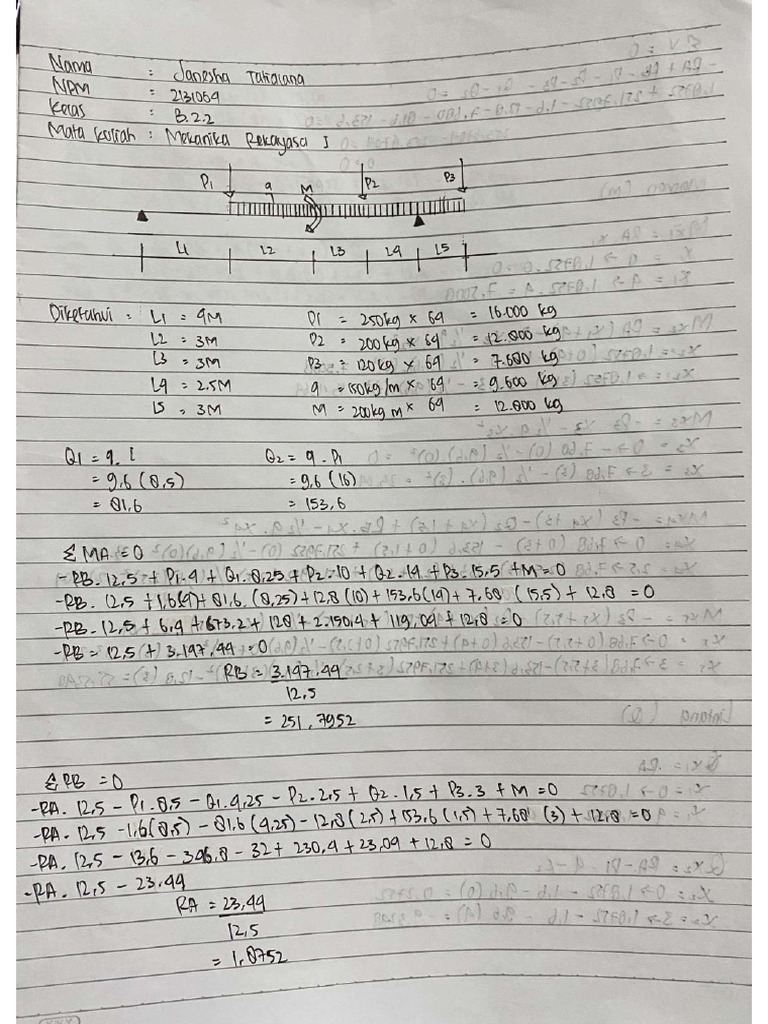 Nama : Janesha Tatiana
NPM : 2131064
Kelas : B.2.2
Mata kuliah : Mekanika Rekayasa I
P1 q M P2 P3
L1 L2 L3 L4 L5
Diketahui : L1 = 4M P1 = 250kg × 64 = 16.000 kg
L2 = 3M P2 = 200kg × 64 = 12.800 kg
L3 = 3M P3 = 120kg × 64 = 7.680 kg
L4 = 2.5M q = 150kg/m × 64 = 9.600 kg
L5 = 3M M = 200kg m × 64 = 12.800 kg
Q1 = q. l Q2 = q . P1
= 9,6 (8,5) = 9,6 (16)
= 81,6 = 153,6
ΣMA = 0
-RB. 12,5 + P1.4 + Q1. 8,25 + P2.10 + Q2.14 + P3. 15,5 + M = 0
-RB. 12,5 + 1,6(4) + 81,6. (8,25) + 12,8 (10) + 153,6 (14) + 7,68 (15,5) + 12,8 = 0
-RB. 12,5 + 6,4 + 673,2 + 128 + 2.150,4 + 119,04 + 12,8 = 0
-RB = 12,5 + 3.147,44 = 0
RB = 3.147,44
12,5
= 251,7952
ΣRB = 0
-RA. 12,5 - P1.8,5 - Q1.4,25 - P2.2,5 + Q2.1,5 + P3.3 + M = 0
-RA. 12,5 - 1,6(8,5) - 81,6 (4,25) - 12,8 (2,5) + 153,6 (1,5) + 7,68 (3) + 12,8 = 0
-RA. 12,5 - 13,6 - 346,8 - 32 + 230,4 + 23,04 + 12,8 = 0
-RA. 12,5 - 23,44
RA = 23,44
12,5
= 1,8752